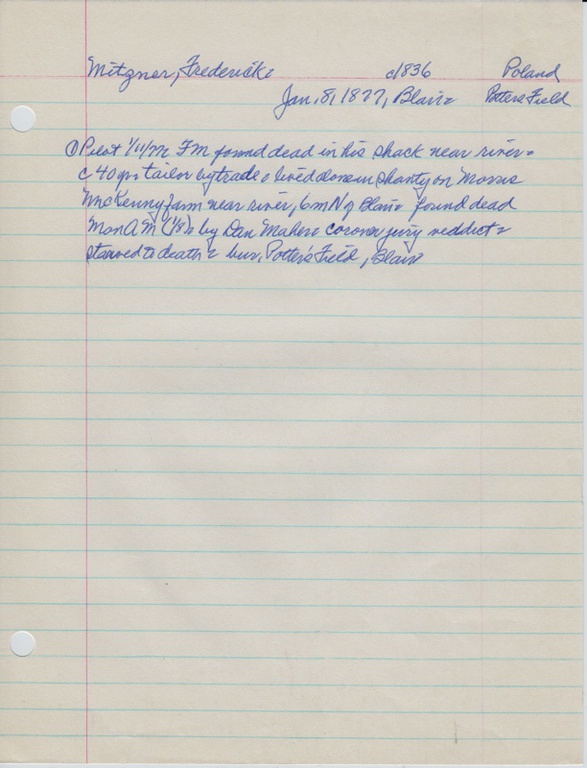 Mitzner, Frederick c1836 Poland
Jan. 8, 1877, Blair Potters Field
① Pilot 1/11/77 FM found dead in his shack near river -
c 40 yrs tailor by trade - lived alone in shanty on Morris
McKenny farm near river, 6 m N of Blair found dead
Mon AM (1/8) by Dan Maher - coroner jury veddict -
starved to death - bur. Potter's Field, Blair